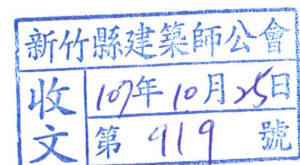 新竹縣建築師公會
收文
107年10月25日
第919號